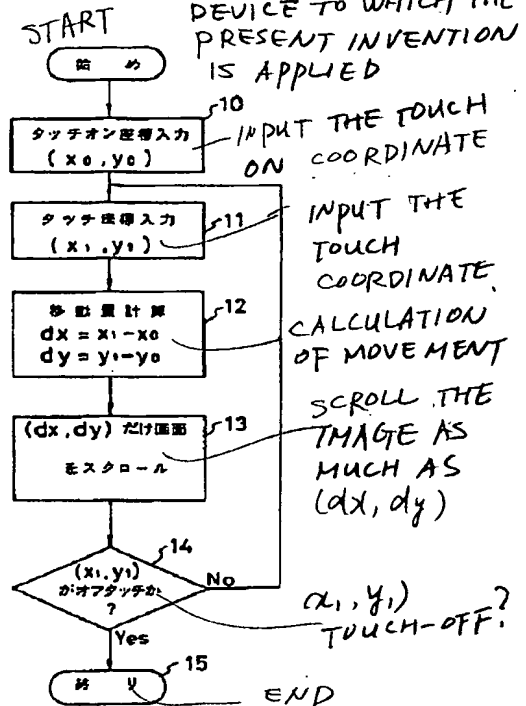 START
DEVICE TO WHICH THE
PRESENT INVENTION
IS APPLIED
始め
10
タッチオン座標入力
(x0,y0)
INPUT THE TOUCH
ON COORDINATE
11
タッチ座標入力
(x1,y1)
INPUT THE
TOUCH
COORDINATE
12
移動量計算
dx=x1-x0
dy=y1-y0
CALCULATION
OF MOVEMENT
13
(dx,dy)だけ画面
をスクロール
SCROLL THE
IMAGE AS
MUCH AS
(dx, dy)
14
(x1,y1)
がオフタッチか
?
No
x1, y1)
TOUCH-OFF?
Yes
15
終り
END